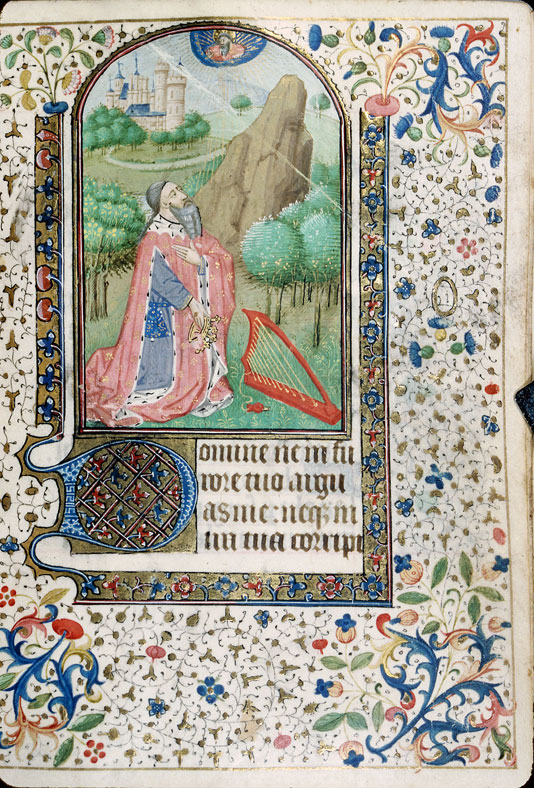 Domine ne in fu
rore tuo argu
as me: neq3 in
ira tua corripi